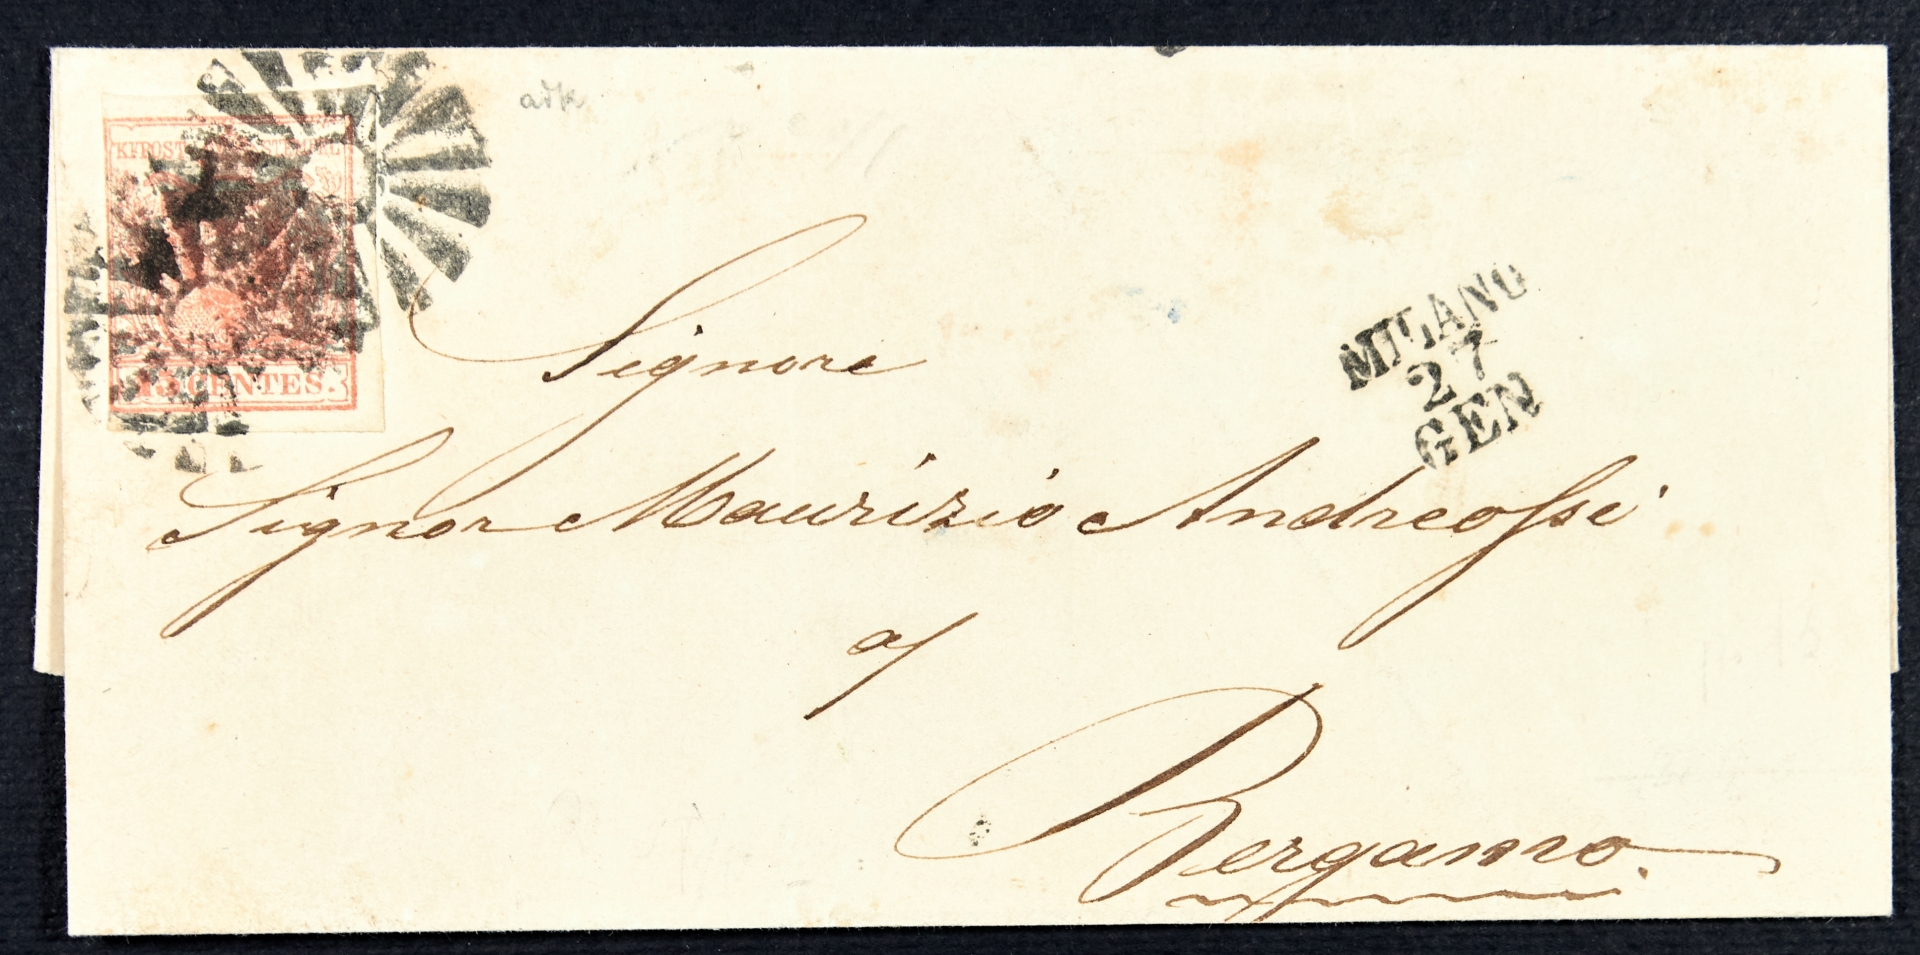 adk
KK POST STEMPEL
15 CENTES.
MILANO
27
GEN
Signore
Signor Maurizio Andreossi
a/
Bergamo.